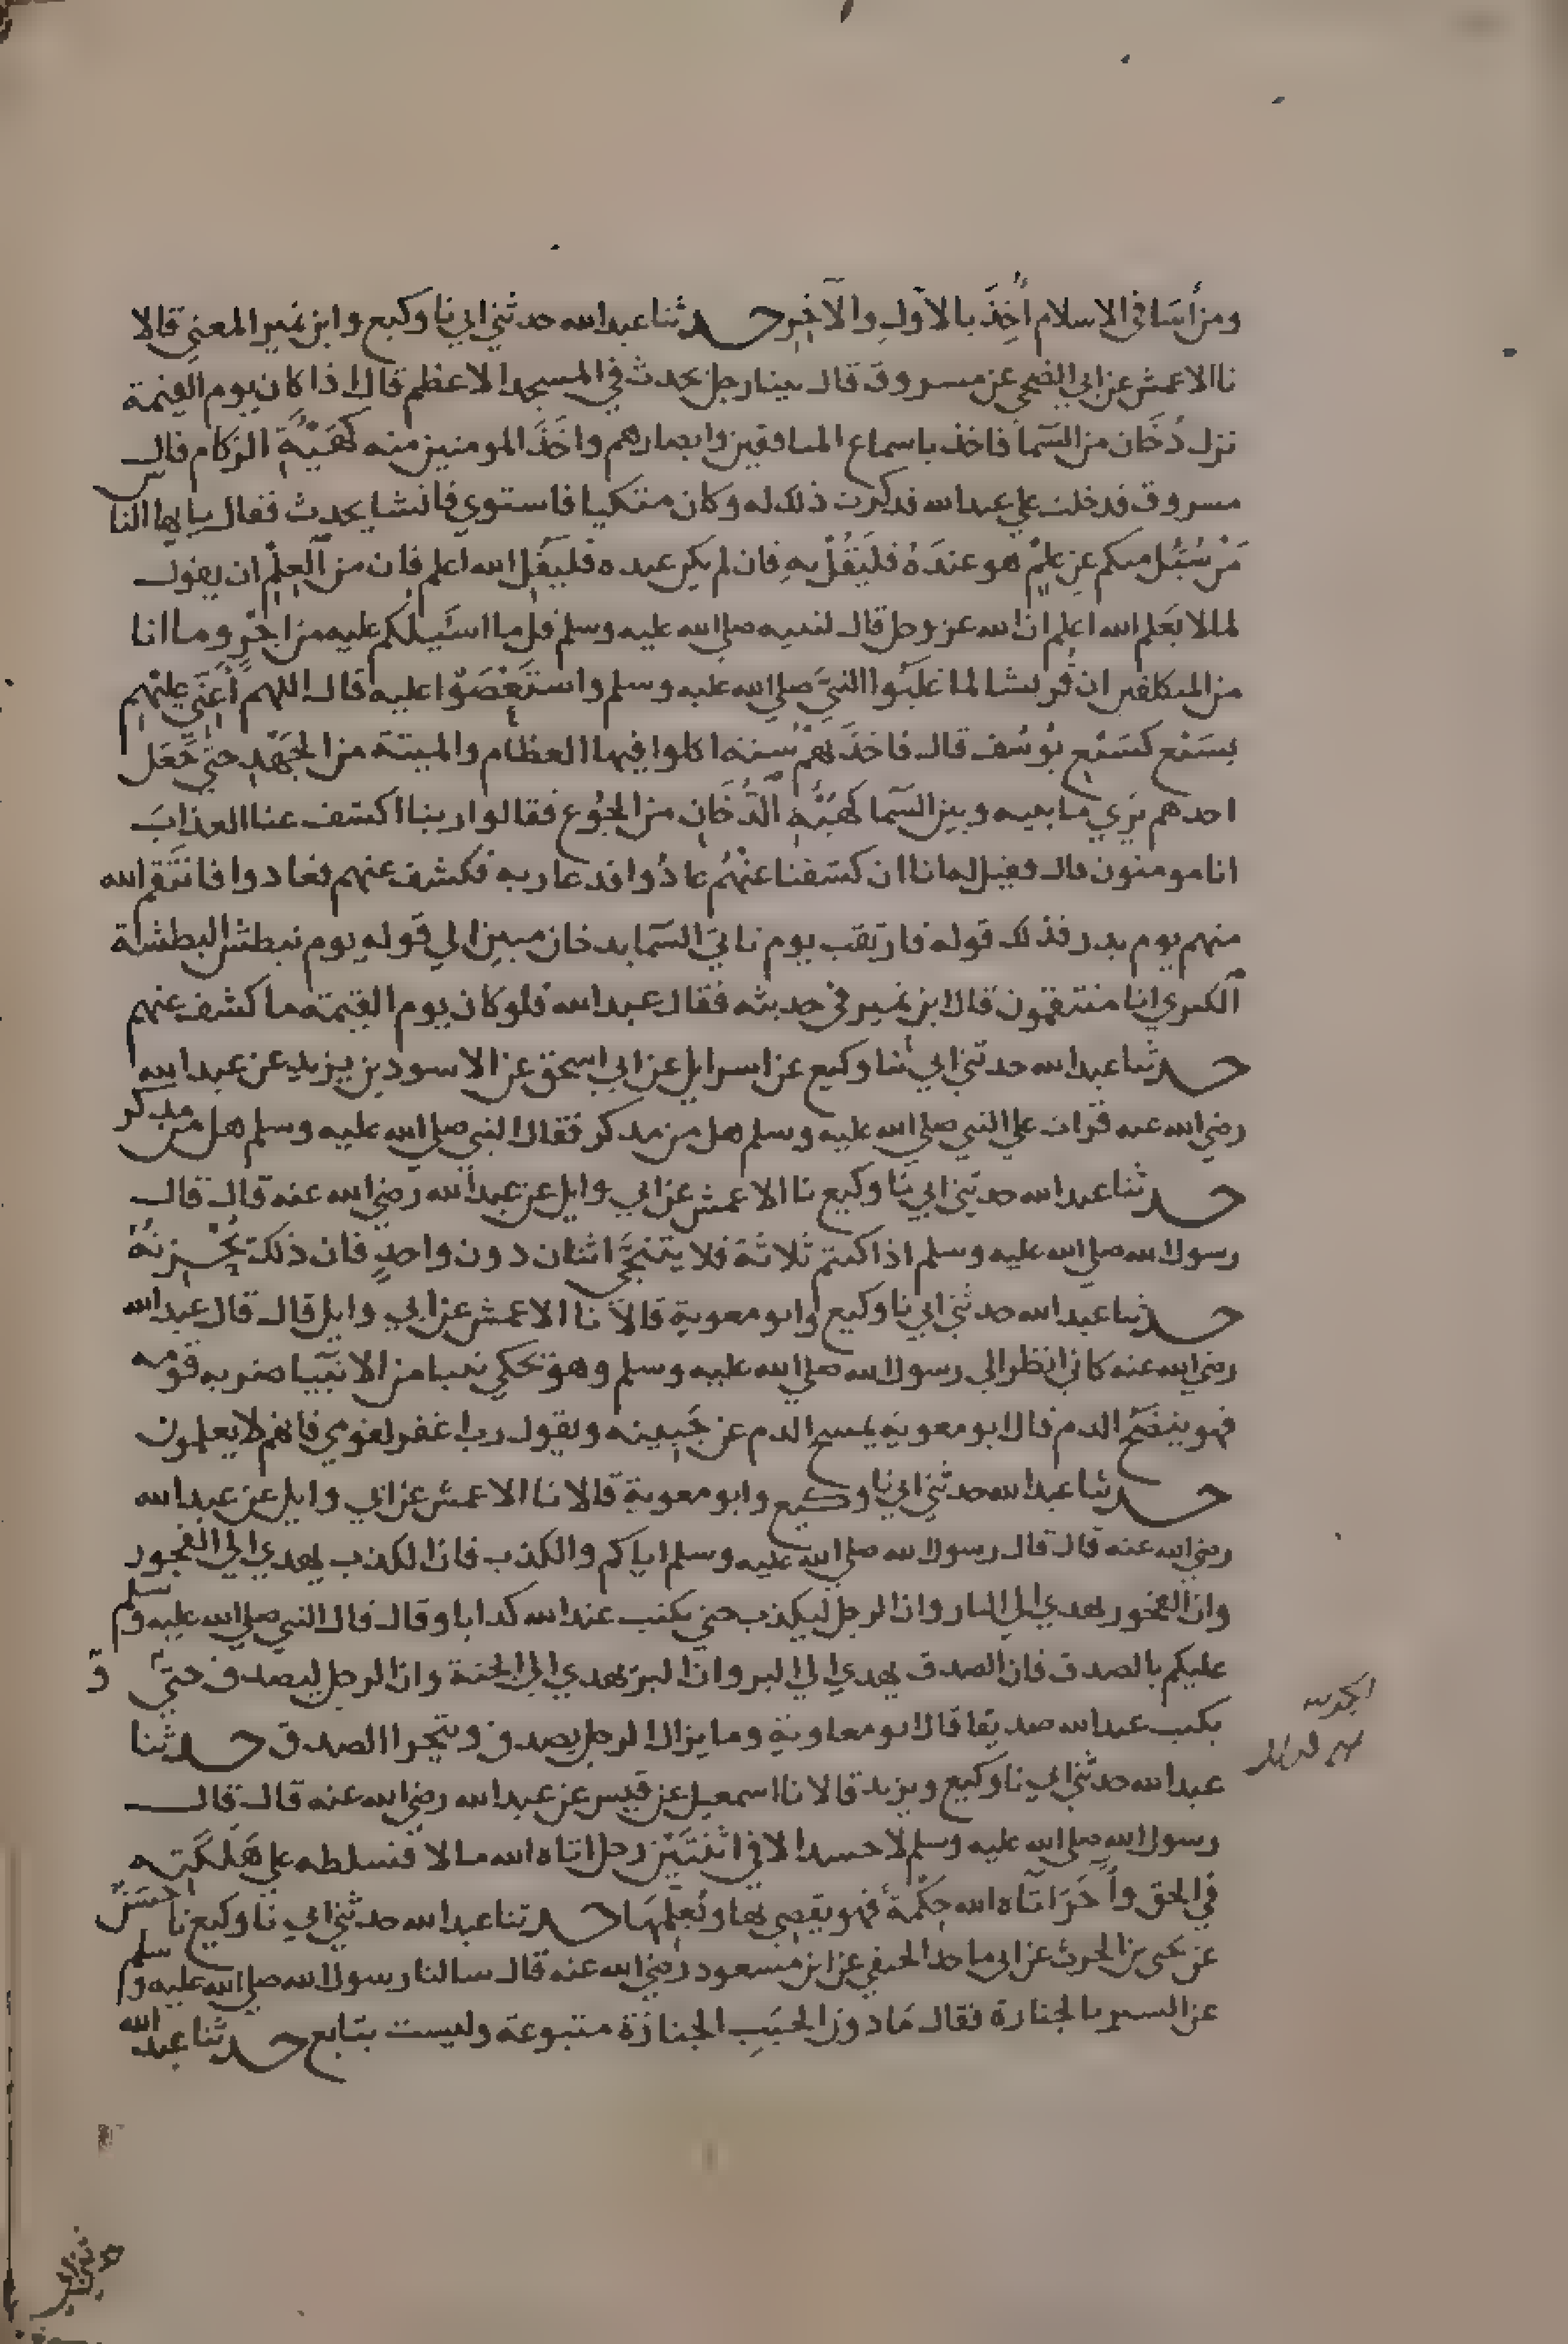 ومن أسَا في الاسلام أُخِذَ بالاول والآخِرِ حدثنا عبدالله حدثني ابي نا وكيع وابن نمير المعني قالا
نا الاعمش عن ابي الضحى عن مسروق قال بينا رجل يحدث في المسجد الاعظم قال اذا كان يوم القيمة
نزل دُخَان من السَّما فاخذ باسماع المنافقين وابصارهم واخَذَ المومنين منه كَهَيْئَةِ الزكام قال
مسروق فدخلت علي عبدالله فذكرت ذلك له وكان متكيا فاستوي فانشا يحدث فقال يايها الناس
مَنْ سُئِل منكم عن عِلْمٍ هو عندَهُ فليَقُلْ بِهِ فان لم يكن عنده فليَقُل الله اعلم فان من العِلْمِ ان يقول
لما لا يَعلم الله اعلم ان الله عز وجل قال لنبيه صلي الله عليه وسلم قل ما اسئَلُكم عليه من اجْرٍ وما انا
من المتكلفين ان قُريشا لما غلبُوا النبيَّ صلي الله عليه وسلم واستَعْصَوْا عليه قال اللهم أَعِنِّي عليْهِم
بسَبْع كسَبْع يُوسُف قال فاخذَتهُمْ سَنة اكلوا فيها العظام والميتة من الجَهْدِ حتي جَعَل
احدهم يَرَي ما بينه وبين السَّما كهَيْئَةِ الدُّخَانِ من الجُوع فقالوا ربنا اكشف عنا العذابَ
انا مومنون قال فقيل له انا ان كشفنا عنْهُم عادُوا فدعا ربه فكشف عنهم فعادوا فانتَقَم الله
منهم يوم بدر فذلك قوله فارتقب يوم تاتي السَّما بدخان مبين الي قوله يوم نبطش البطشة
الكبري انا منتقمون قال ابن نمير في حديثه فقال عبدالله فلو كان يوم القيمة ما كشف عنهم
حدثنا عبدالله حدثني ابي ثنا وكيع عن اسرايل عن ابي اسحق عن الاسود بن يزيد عن عبدالله
رضي الله عنه قرات علي النبي صلي الله عليه وسلم هل من مدكر فقال النبي صلي الله عليه وسلم هل من مدكر
حدثنا عبدالله حدثني ابي نا وكيع نا الاعمش عن ابي وايل عن عبدالله رضي الله عنه قال قال
رسول الله صلي الله عليه وسلم اذا كنتم ثلاثة فلا يتنجَّى اثنان دون واحدٍ فان ذلك يُحْزِنُهُ
حدثنا عبدالله حدثني ابي نا وكيع وابو معوية قالا نا الاعمش عن ابي وايل قال قال عبدالله
رضي الله عنه كاني انظر الي رسول الله صلي الله عليه وسلم وهو يحكي نبيا من الانبيا ضربه قومه
فهو ينضَحُ الدم قال ابو معوية يمسح الدم عن جَبِينه ويقول رب اغفر لقومي فانهم لا يعلمون
حدثنا عبدالله حدثني ابي نا وكيع وابو معوية قالا نا الاعمش عن ابي وايل عن عبدالله
رضي الله عنه قال قال رسول الله صلي الله عليه وسلم اياكم والكذب فان الكذب يهدي الي الفجور
وان الفجور يهدي الي النار وان الرجل ليكذب حتي يكتب عند الله كذابا وقال قال النبي صلي الله عليه وسلم
عليكم بالصدق فان الصدق يهدي الي البر وان البر يهدي الي الجنة وان الرجل ليصدق حتي
يكتب عند الله صديقا قال ابو معاوية وما يزال الرجل يصدق ويتحرا الصدق حدثنا
عبدالله حدثني ابي نا وكيع ويزيد قالا نا اسمعيل عن قيس عن عبدالله رضي الله عنه قال قال
رسول الله صلي الله عليه وسلم لا حسد الا في اثنتَيْن رجل اتاه الله مالا فسلطه علي هَلَكَتِه
في الحق وآخَرَ اتاه الله حِكْمةً فهو يقضِي بها ويُعلِّمهَا حدثنا عبدالله حدثني ابي نا وكيع نا حسَنٌ
عن يحيى بن الحرث عن ابي ماجد الحنفي عن ابن مسعود رضي الله عنه قال سالنا رسول الله صلي الله عليه وسلم
عن السير بالجنازة فقال مَا دون الخبَبِ الجنازة متبوعة وليست بتابع حدثنا عبدالله